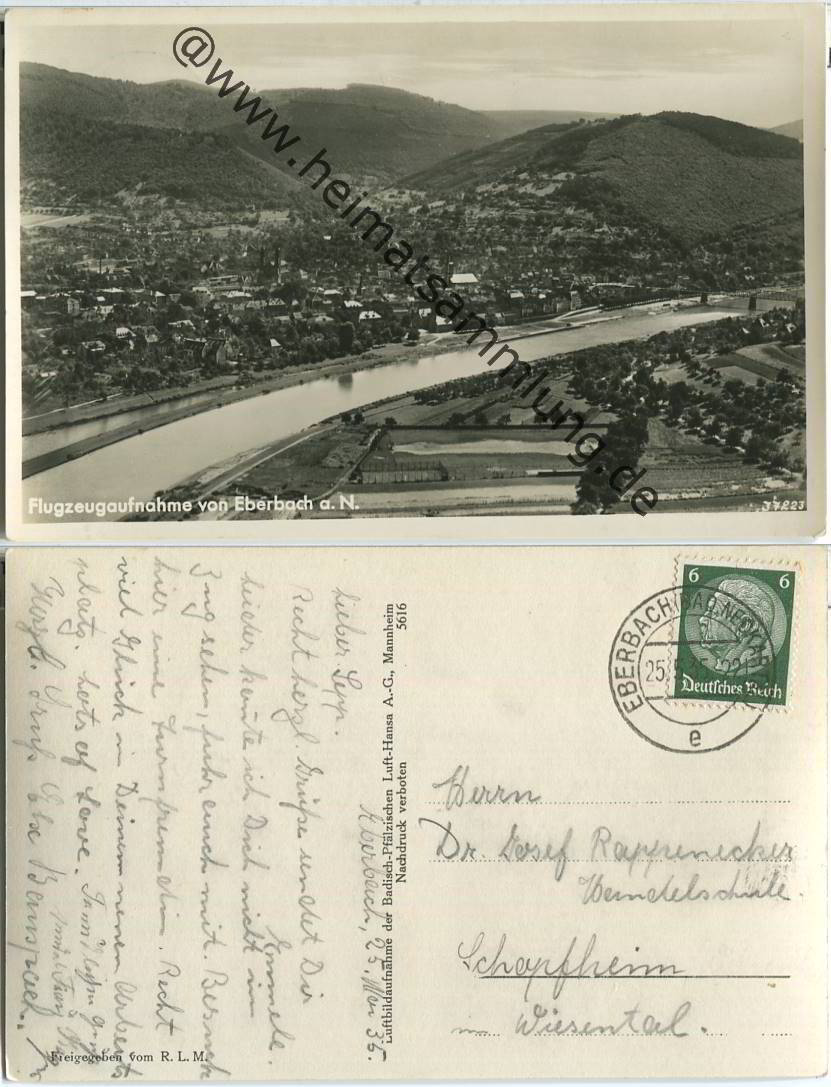 @www.heimatsammlung.de
Flugzeugaufnahme von Eberbach a. N.
37223
Eberbach, 25. Mai 35.
Lieber Sepp.
Recht herzl. Grüße sendet Dir
Emmele.
Leider konnte ich Dich nicht im
Zug sehen, fuhr auch mit. Besuch
hier eine Turnfreundin. Recht
viel Glück in Deinem neuen Arbeits
platz. lots of Love.
Herzl. Gruß Else
Freigegeben vom R. L. M.
Luftbildaufnahme der Badisch-Pfälzischen Luft-Hansa A.-G., Mannheim
Nachdruck verboten
5616
6 6
Deutsches Reich
EBERBACH (BAD. NECKAR)
25.5.35
e
Herrn
Dr. Josef Rappenecker
Handelsschule.
Schopfheim
Wiesental.